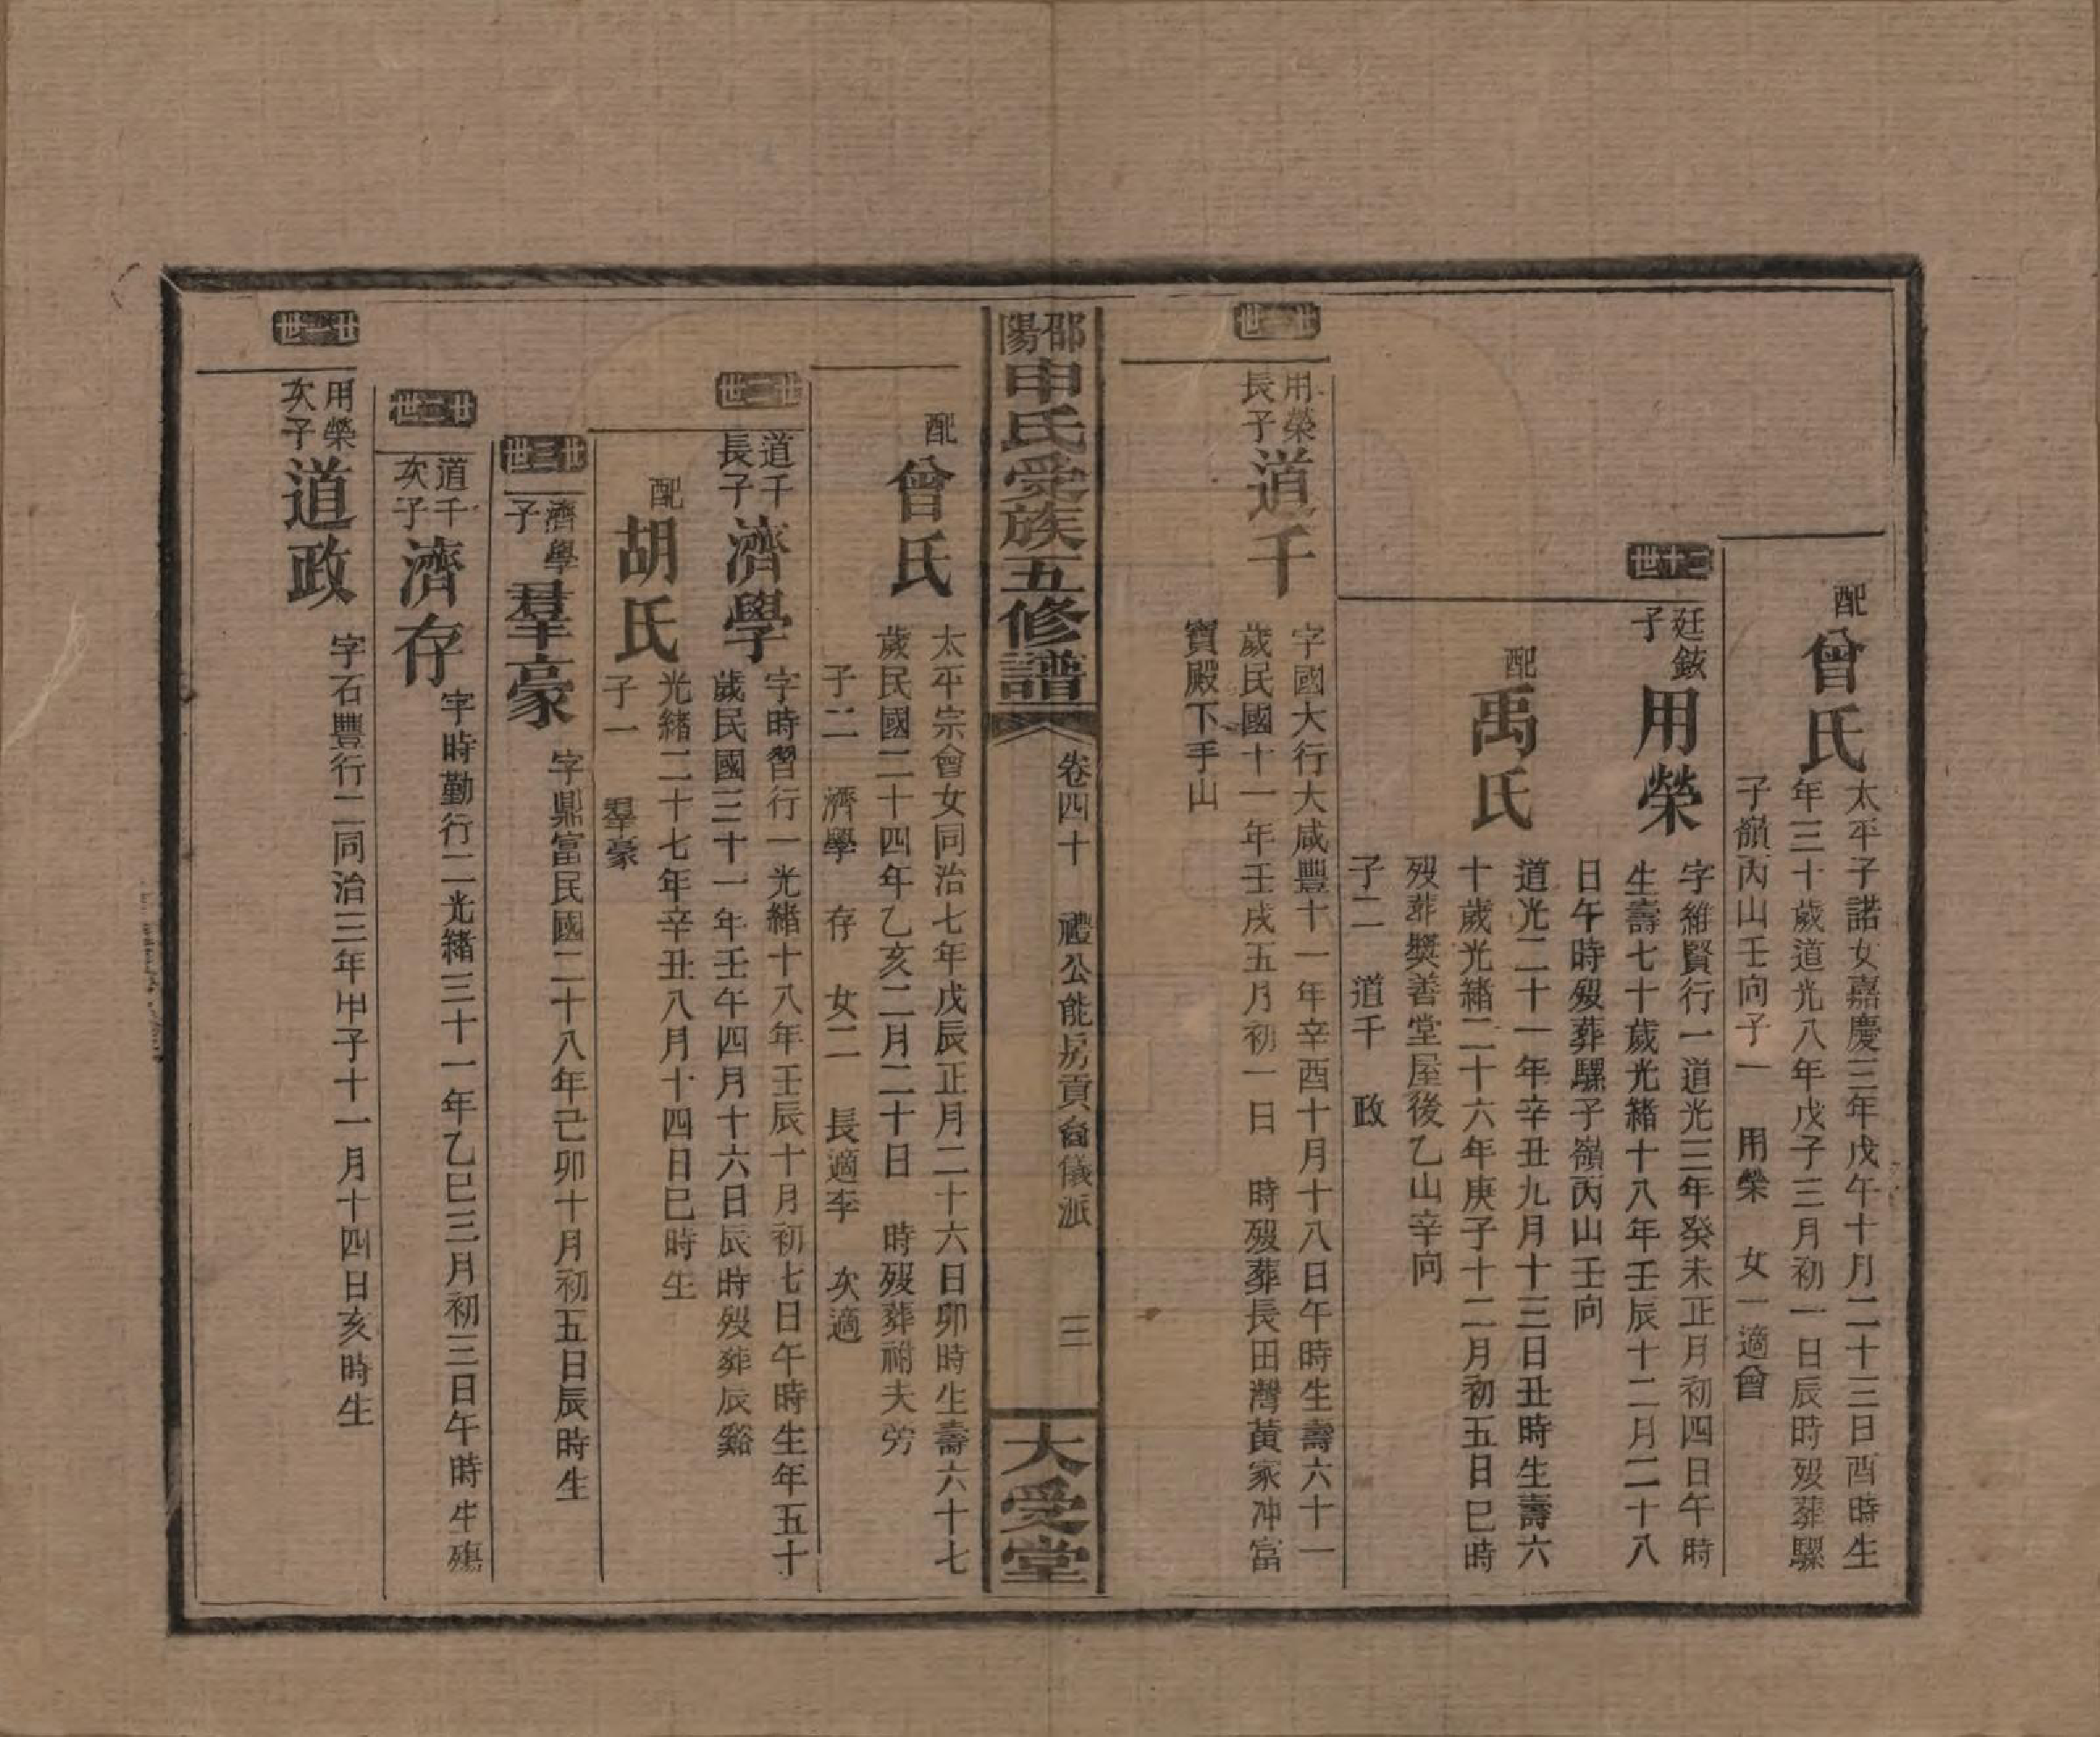 配
曾氏
太平子諾女嘉慶三年戊午十月二十三日酉時生
年三十歲道光八年戊子三月初一日辰時歿葬騾
子嶺丙山壬向子一　用榮　女一適曾
三十世
廷鉉
子
用榮
字維賢行一道光三年癸未正月初四日午時
生壽七十歲光緒十八年壬辰十二月二十八
日午時歿葬騾子嶺丙山壬向
配
禹氏
道光二十一年辛丑九月十三日丑時生壽六
十歲光緒二十六年庚子十二月初五日巳時
歿葬獎善堂屋後乙山辛向
子二　道千　政
卅一世
用榮
長子
道千
字國大行大咸豐十一年辛酉十月十八日午時生壽六十一
歲民國十一年壬戌五月初一日　時歿葬長田灣黃家冲富
寶殿下手山
邵陽申氏受族五修譜
卷四十　禮公能房貢裔儀派
三
大受堂
配
曾氏
太平宗會女同治七年戊辰正月二十六日卯時生壽六十七
歲民國二十四年乙亥二月二十日　時歿葬祔夫旁
子二　濟學　存　女二　長適李　次適
卅二世
道千
長子
濟學
字時習行一光緒十八年壬辰十月初七日午時生年五十
歲民國三十一年壬午四月十六日辰時歿葬辰谿
配
胡氏
光緒二十七年辛丑八月十四日巳時生
子一　羣豪
卅三世
濟學
子
羣豪
字鼎富民國二十八年己卯十月初五日辰時生
卅二世
道千
次子
濟存
字時勤行二光緒三十一年乙巳三月初三日午時生殤
卅一世
用榮
次子
道政
字石豐行二同治三年甲子十一月十四日亥時生